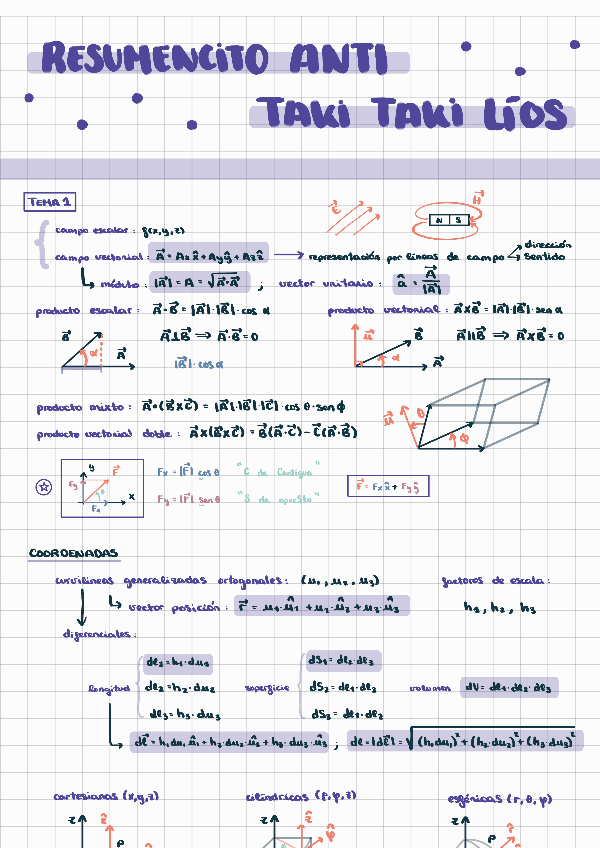 RESUMENCITO ANTI
TAKI TAKI LÍOS
TEMA 1
campo escalar : f(x,y,z)
E⃗
N S
H⃗
campo vectorial : A⃗ = Ax x̂ + Ay ŷ + Az ẑ → representación por líneas de campo
dirección
sentido
módulo : |A⃗| = A = √(A⃗·A⃗) ; vector unitario : â = A⃗/|A⃗|
producto escalar : A⃗·B⃗ = |A⃗|·|B⃗|·cos α
producto vectorial : A⃗xB⃗ = |A⃗|·|B⃗|·sen α
B⃗ α A⃗
A⃗⊥B⃗ ⟹ A⃗·B⃗ = 0
|B⃗|·cos α
μ⃗ B⃗ α A⃗
A⃗||B⃗ ⟹ A⃗xB⃗ = 0
producto mixto : A⃗·(B⃗xC⃗) = |A⃗|·|B⃗|·|C⃗|·cos θ·sen ϕ
producto vectorial doble : A⃗x(B⃗xC⃗) = B⃗(A⃗·C⃗) − C⃗(A⃗·B⃗)
μ⃗ θ ϕ
y F⃗ Fy θ Fx x
Fx = |F⃗| cos θ "C de Contiguo"
Fy = |F⃗| sen θ "S de opuesto"
F⃗ = Fx x̂ + Fy ŷ
COORDENADAS
curvilíneas generalizadas ortogonales : (u₁, u₂, u₃)
factores de escala :
vector posición : r⃗ = u₁·û₁ + u₂·û₂ + u₃·û₃
h₁, h₂, h₃
diferenciales :
dl₁ = h₁·du₁
dS₁ = dl₂·dl₃
longitud dl₂ = h₂·du₂
superficie dS₂ = dl₁·dl₃
volumen dV = dl₁·dl₂·dl₃
dl₃ = h₃·du₃
dS₃ = dl₁·dl₂
dl⃗ = h₁du₁û₁ + h₂·du₂·û₂ + h₃·du₃·û₃ ; dl = |dl⃗| = √((h₁du₁)² + (h₂·du₂)² + (h₃·du₃)²)
cartesianas (x,y,z)
cilíndricas (ρ, φ, z)
esféricas (r, θ, φ)
z ẑ P
z ẑ φ̂
z P r̂